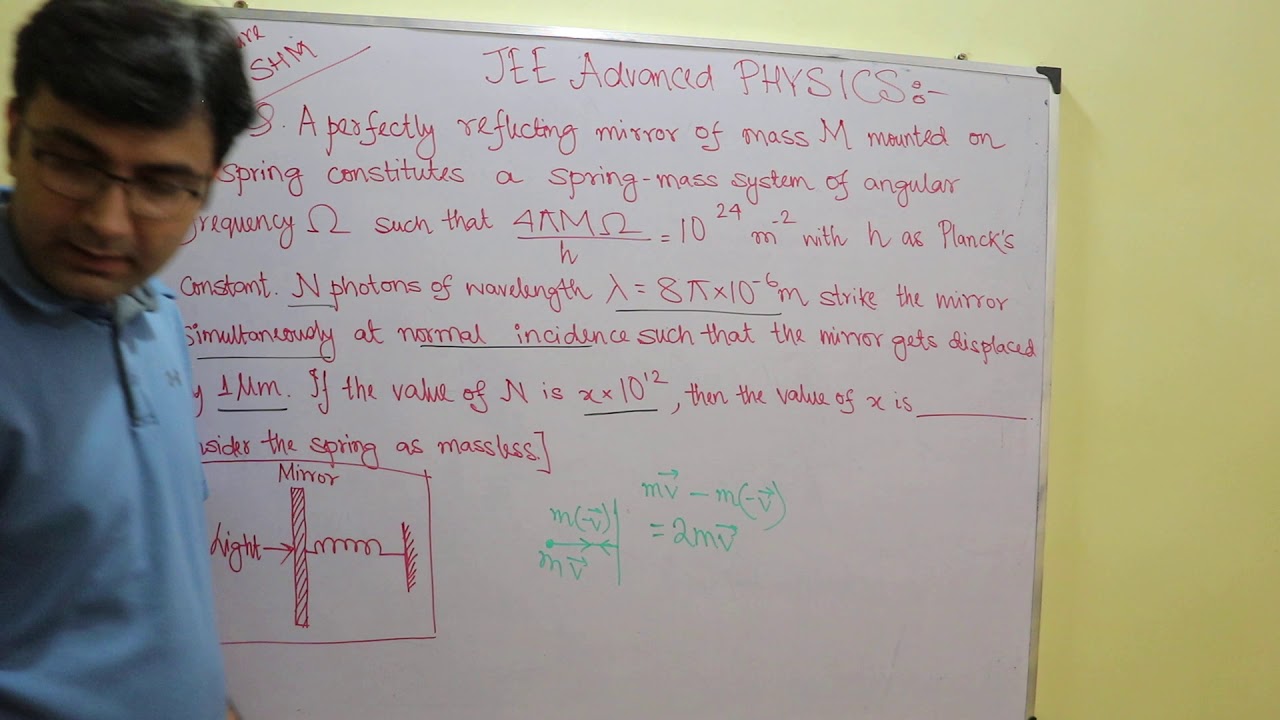 SHM
JEE Advanced PHYSICS:-
Q. A perfectly reflecting mirror of mass M mounted on
spring constitutes a spring-mass system of angular
frequency Ω such that 4πMΩ/h = 10^24 m^-2 with h as Planck's
constant. N photons of wavelength λ = 8π×10^-6 m strike the mirror
simultaneously at normal incidence such that the mirror gets displaced
1μm. If the value of N is x×10^12, then the value of x is ______
the spring as massless.]
Mirror
Light
m(-v⃗)
mv⃗
mv⃗ - m(-v⃗)
= 2mv⃗